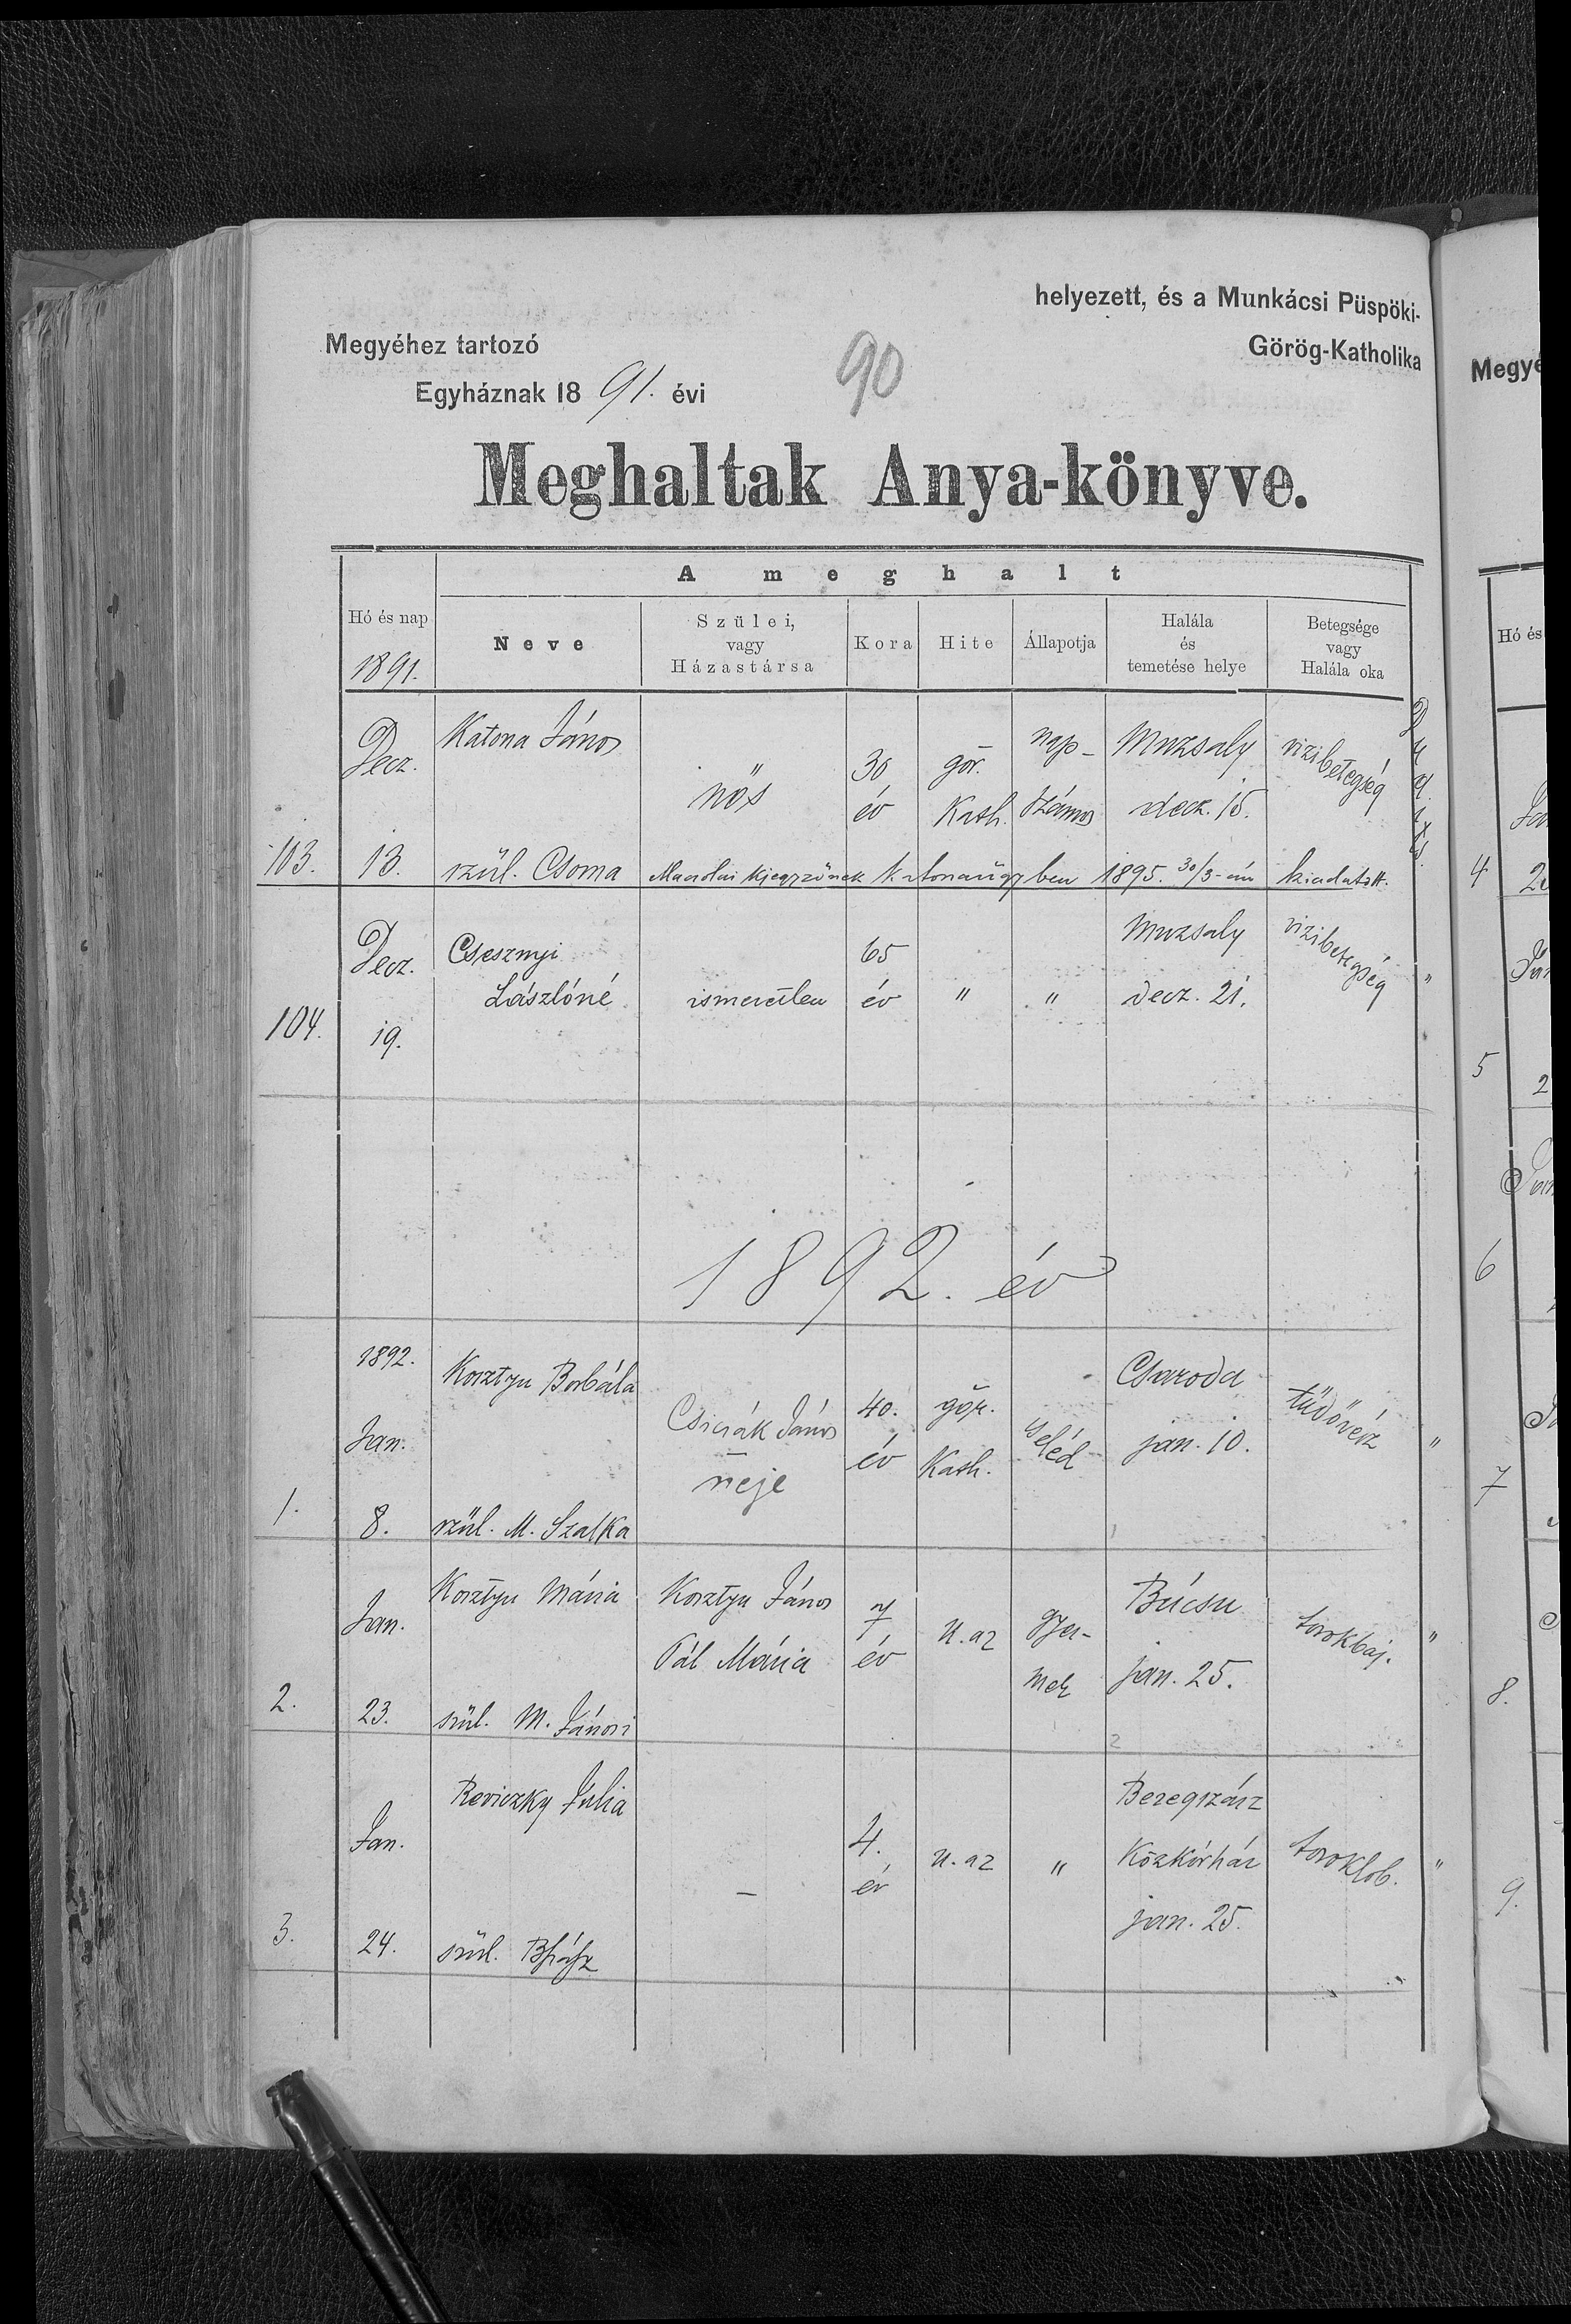 helyezett, és a Munkácsi Püspöki-
Megyéhez tartozó
Görög-Katholika
Egyháznak 1891. évi
90
Meghaltak Anya-könyve.
A meghalt
Hó és nap
1891.
Neve
Szülei,
vagy
Házastársa
Kora
Hite
Állapotja
Halála
és
temetése helye
Betegsége
vagy
Halála oka
103.
Decz.
13.
Katona János
szül. Csoma
nős
30
év
gör.
Kath.
nap-
számos
Muzsaly
decz. 15.
vizibetegség
kjegyzőnek katonaügyben 1895. 30/3-án kiadatott.
104.
Decz.
19.
Csesznyi
Lászlóné
ismeretlen
65
év
"
"
Muzsaly
decz. 21.
vizibetegség
"
1892. év
1.
1892.
Jan.
8.
Kosztyu Borbála
szül. M. Szalka
Csicsák János
neje
40.
év
gör.
Kath.
seléd
Csaroda
jan. 10.
tüdővész
"
1
2.
Jan.
23.
Kosztyu Mária
szül. M. Jánosi
Kosztyu János
Pál Mária
7
év
u. az
gyer-
mek
Búcsu
jan. 25.
torokbaj.
"
2
3.
Jan.
24.
Reviczky Julia
szül.
–
4.
év
u. az
"
Beregszász
Közkórház
jan. 25.
toroklob.
"
Megyé
Hó és
4
5
6
7
8.
9.